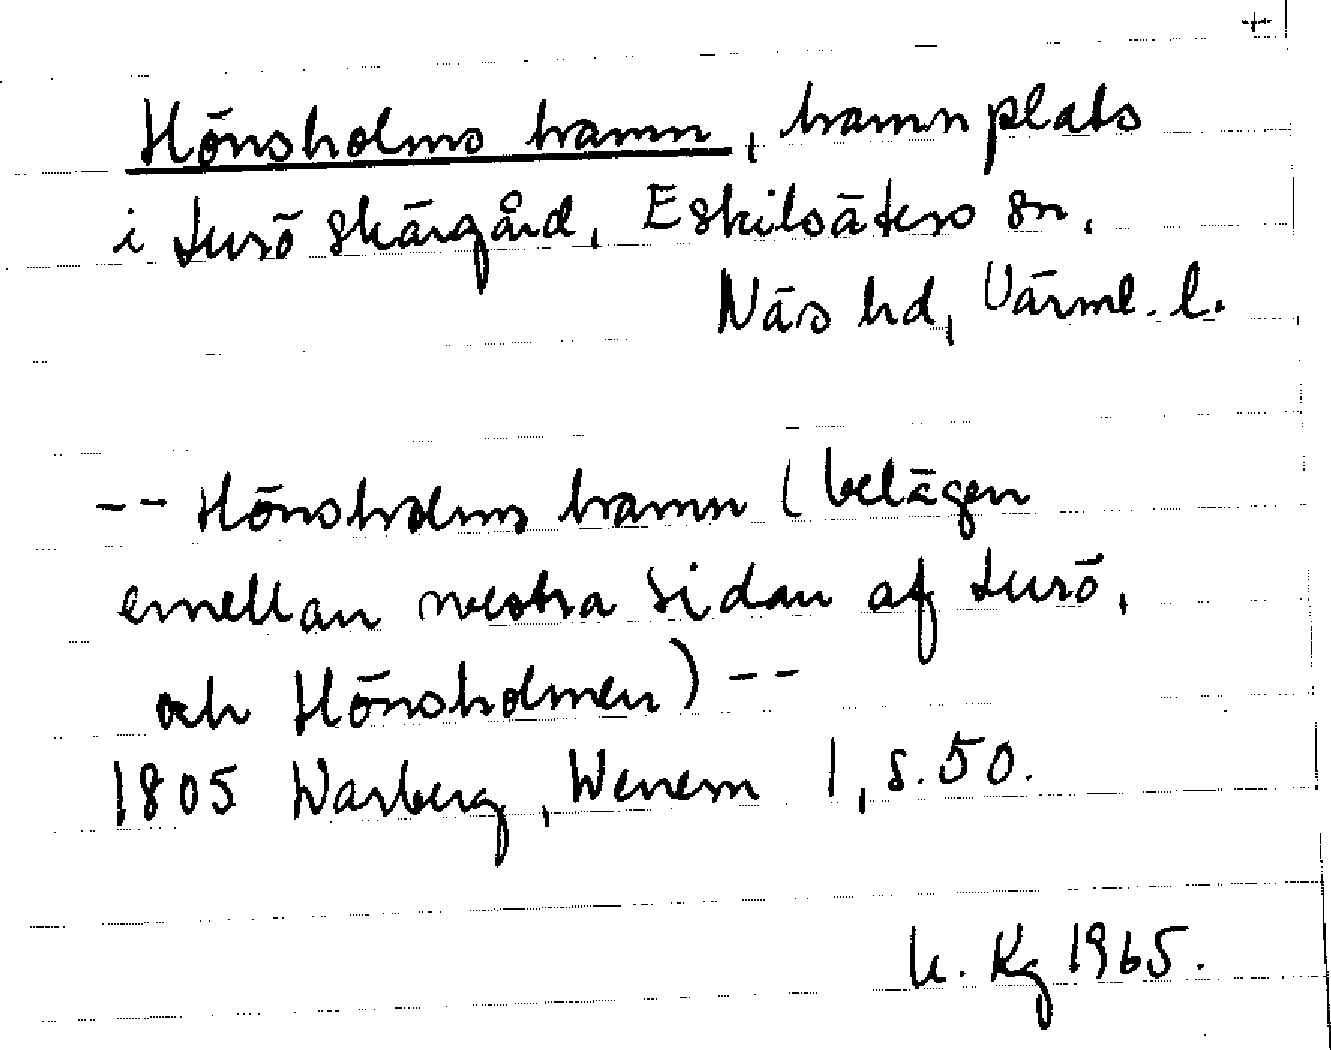 +
Hönsholms hamn, hamnplats
i Lurö skärgård, Eskilsäters sn,
Näs hd, Värml. l.
-- Hönsholms hamn (belägen
emellan westra sidan af Lurö,
och Hönsholmen) --
1805 Warberg, Wenern 1, s. 50.
K. Kg 1965.